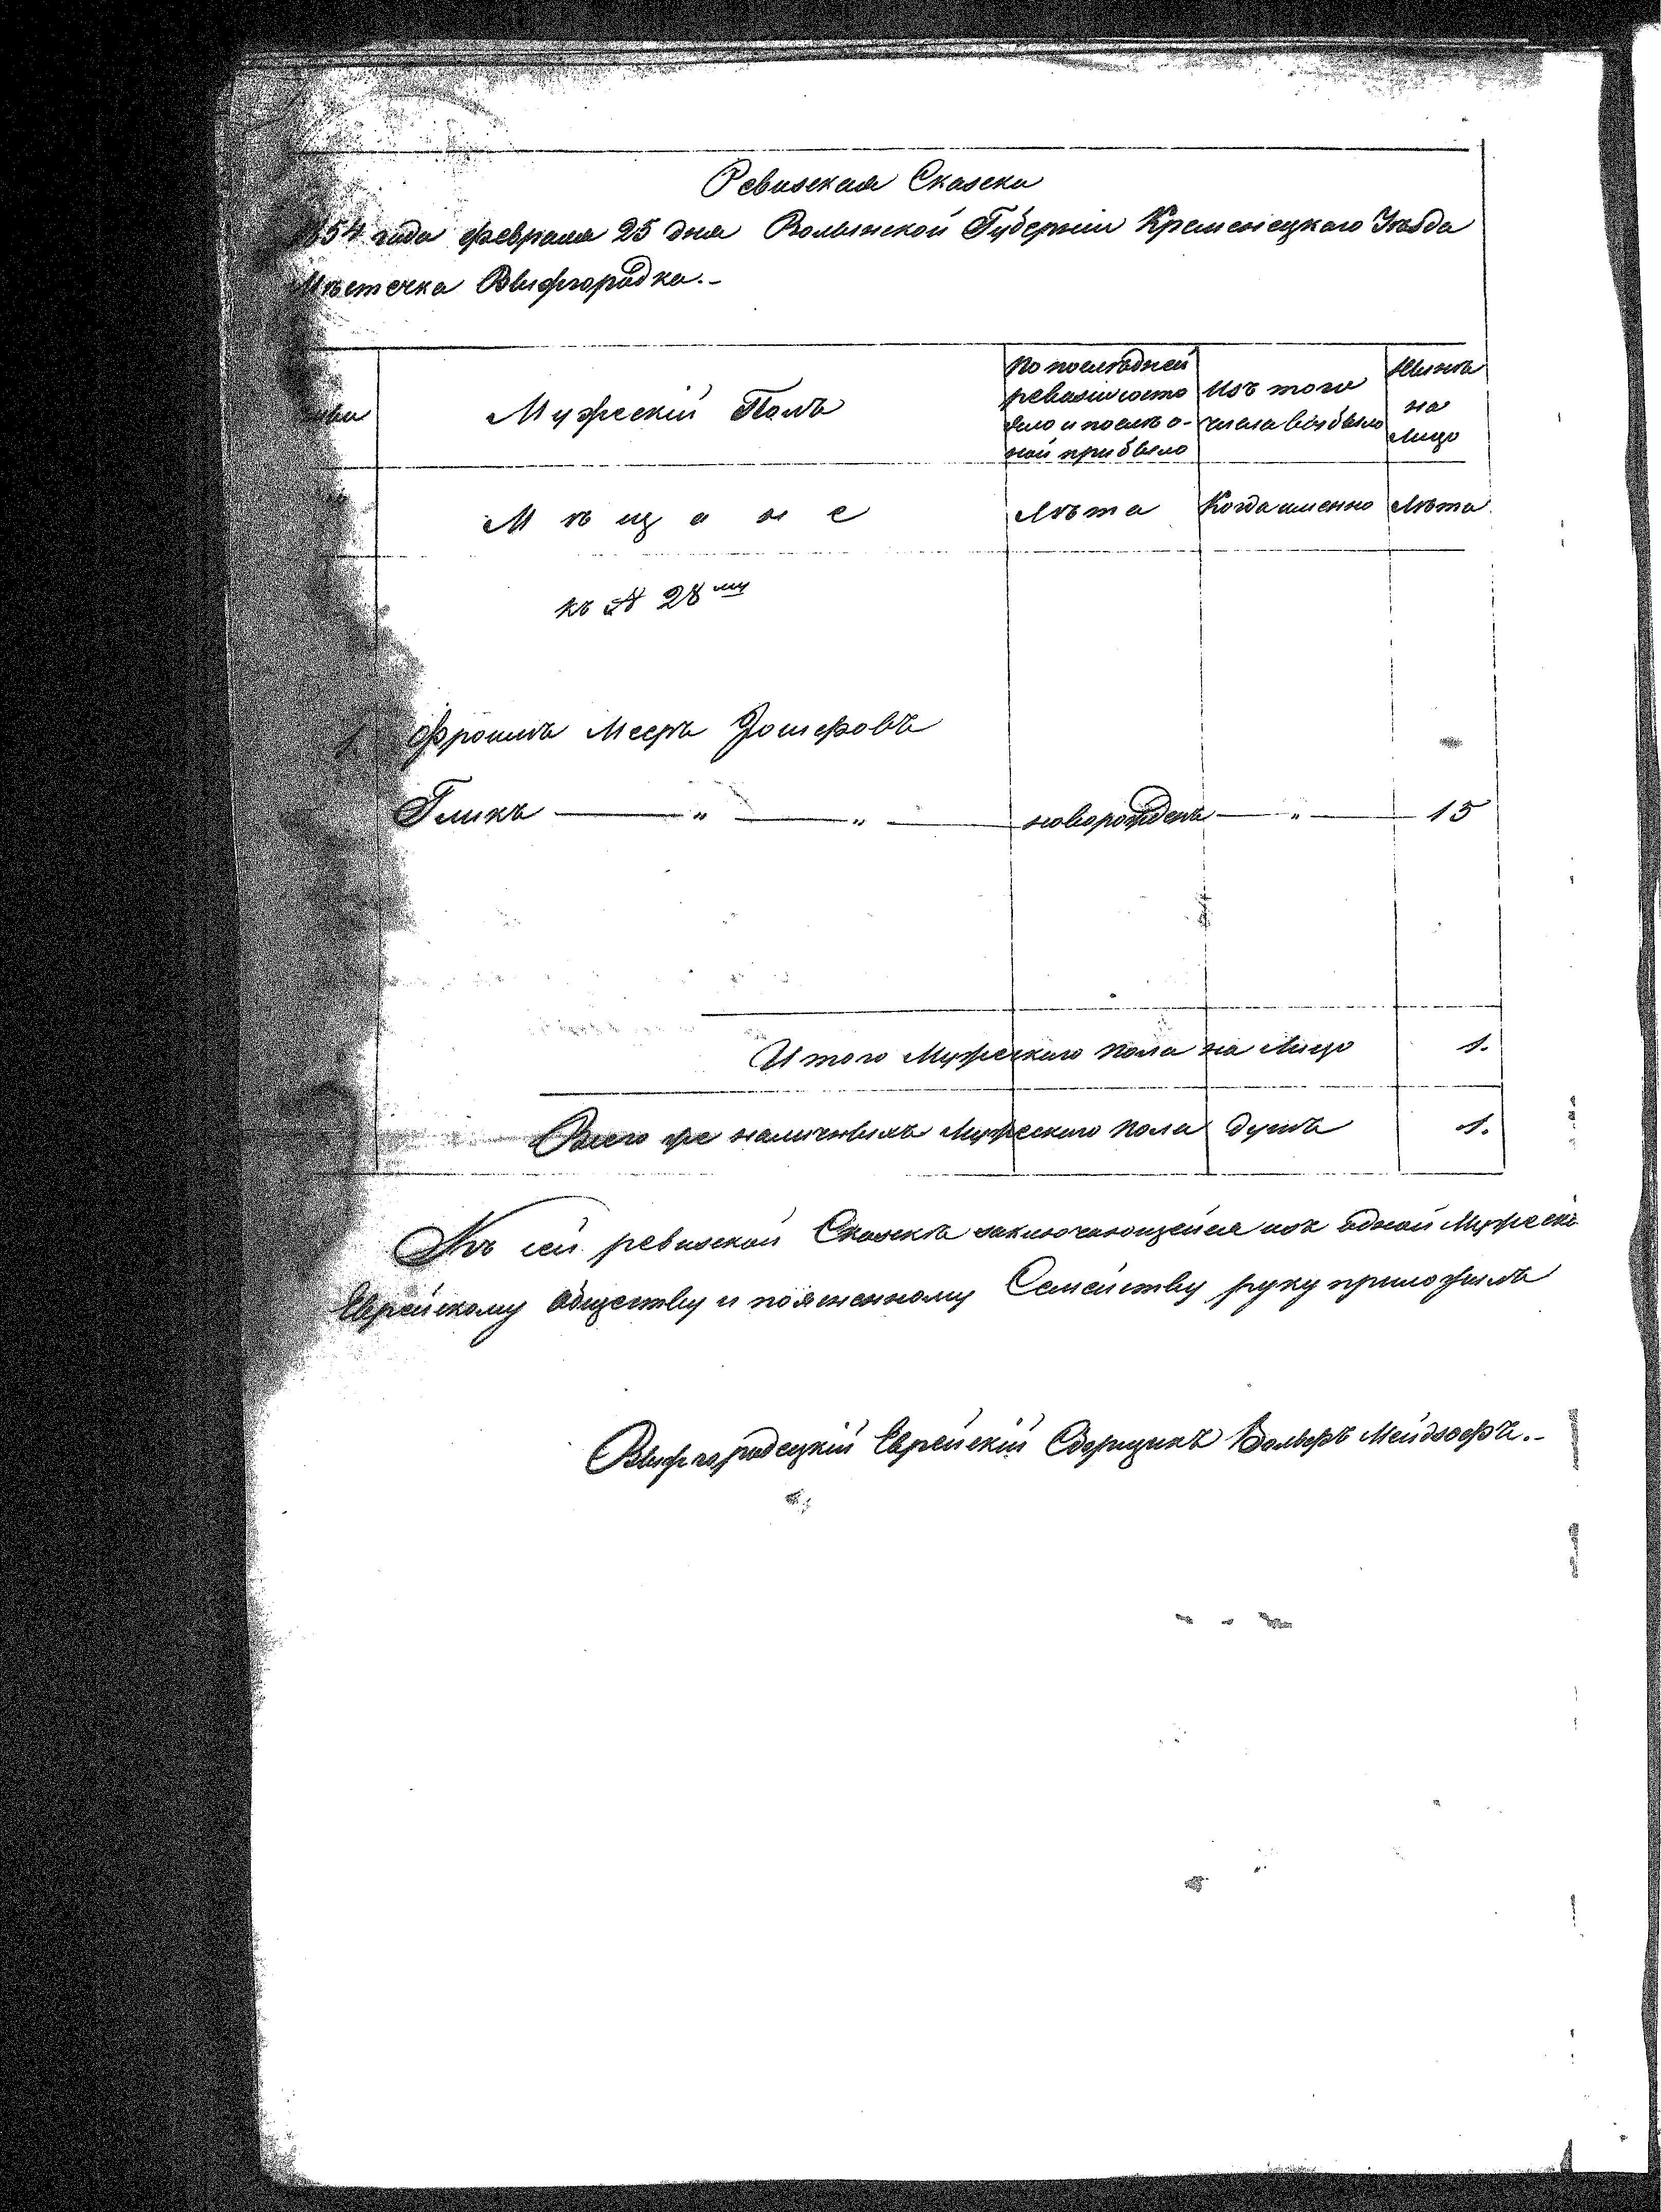 Ревизская Сказка
1854 года февраля 25 дня Волынской Губерніи Кременецкаго Уѣзда
Мѣстечка Вышгородка.-
Мужескій Полъ
По послѣдней
ревизіи состо
яло и послѣ о-
ной прибыло
Изъ того
числа выбыло
Нынѣ
на
Лицо
Мѣщане
Лѣта
Когда именно
Лѣта
къ № 28му
1. Фроимъ Мееръ Іосифовъ
Гликъ — " — " — новорожденъ — " — 15
Итого Мужескаго пола на Лицо 1.
Всего же наличныхъ Мужескаго пола душъ 1.
Къ сей ревизской Сказкѣ заключающейся изъ одной Мужеск
Еврейскому обществу и поясненному Семейству руку приложилъ
Вышгородецкій Еврейскій Сборщикъ Вольфъ